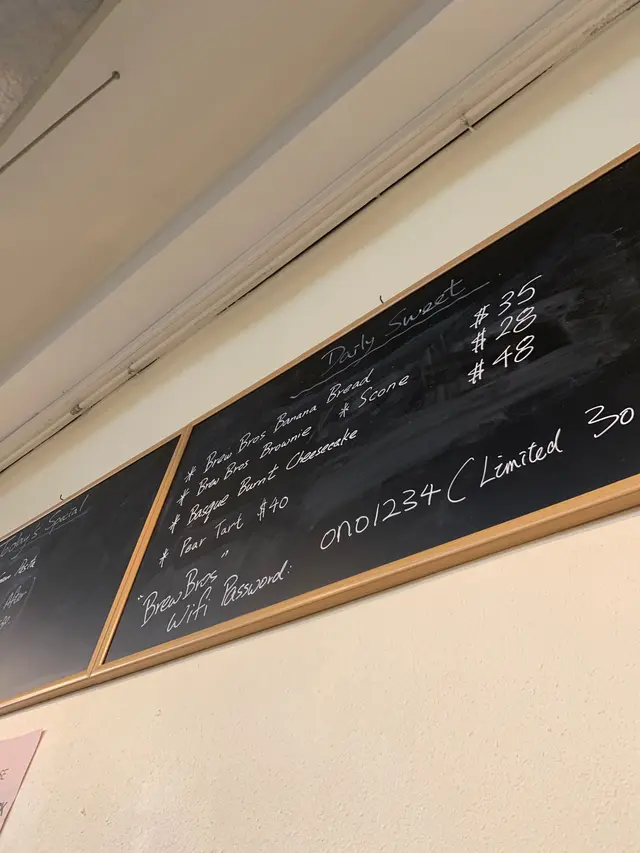 Daily Sweet
* Brew Bros Banana Bread $ 35
* Brew Bros Brownie * Scone $ 28
* Basque Burnt Cheesecake $ 48
* Pear Tart $40
"Brew Bros"
Wifi Password: ono1234 ( Limited 30
Special